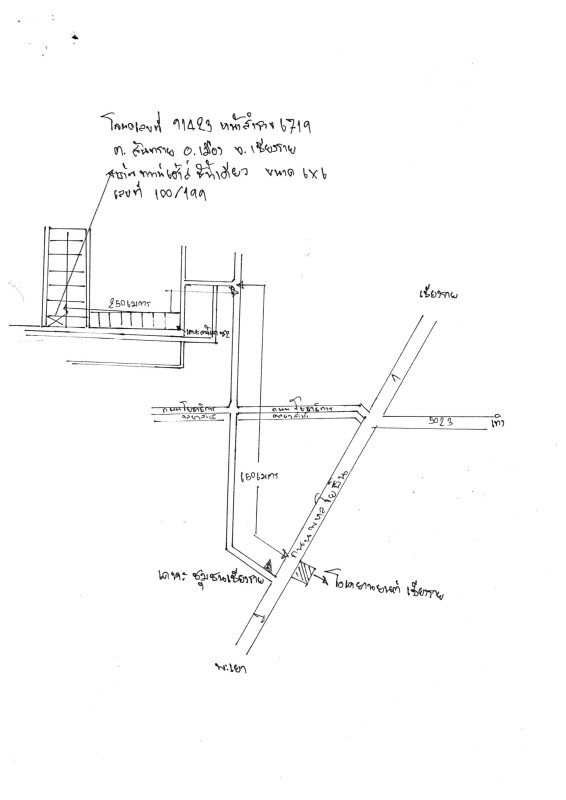 โฉนดเลขที่ 91423 หน้าสำรวจ 6719
ต. สันทราย อ.เมือง จ.เชียงราย
ทาวน์เฮ้าส์ ชั้นเดียว ขนาด 6x6
เลขที่ 100/199
เชียงราย
250 เมตร
1
ถนนโยธาธิการ
ถนนโยธาธิการ
5023
650 เมตร
ถนนพหลโยธิน
เคหะชุมชนเชียงราย
เชียงราย
1
พะเยา